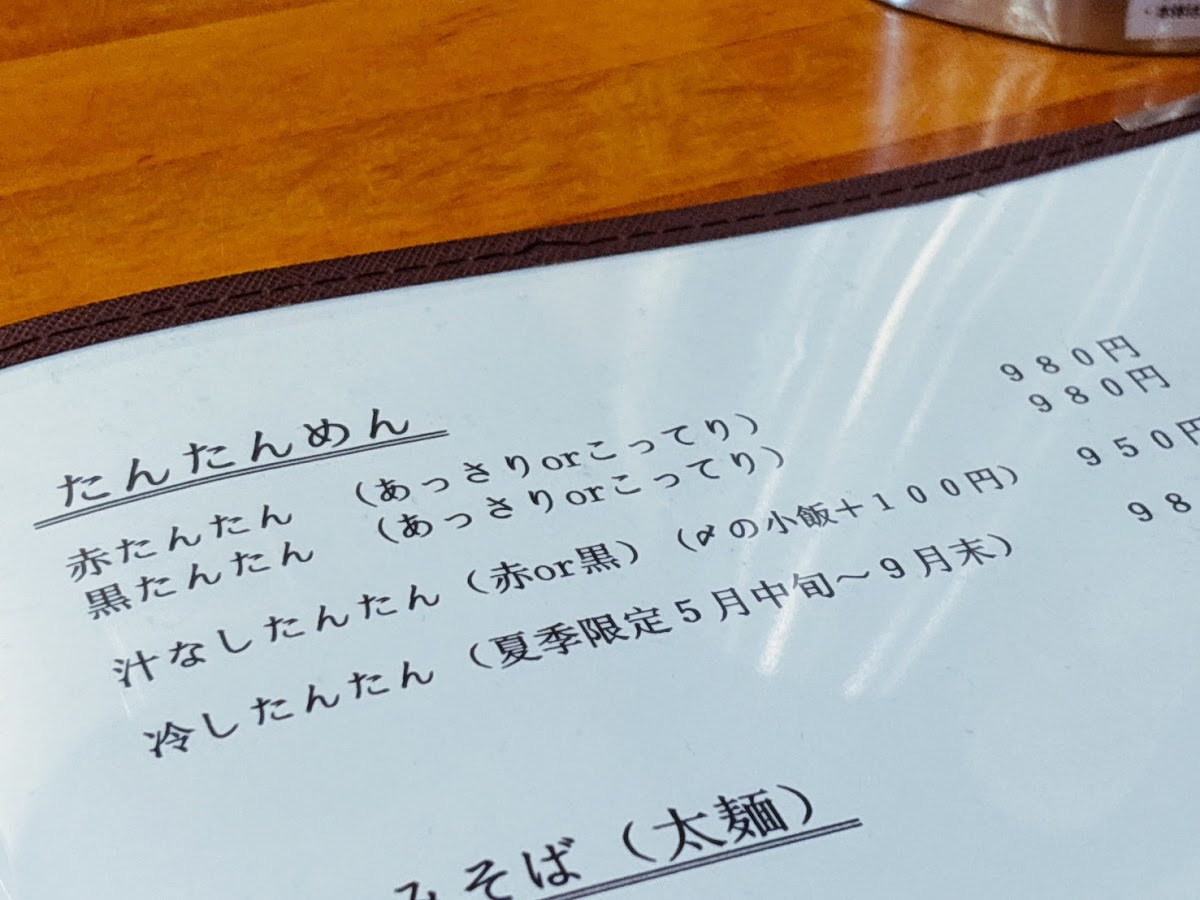 たんたんめん
赤たんたん （あっさりorこってり） ９８０円
黒たんたん （あっさりorこってり） ９８０円
汁なしたんたん（赤or黒）（〆の小飯＋１００円） ９５０円
冷したんたん（夏季限定５月中旬～９月末） ９８
みそば（太麺）